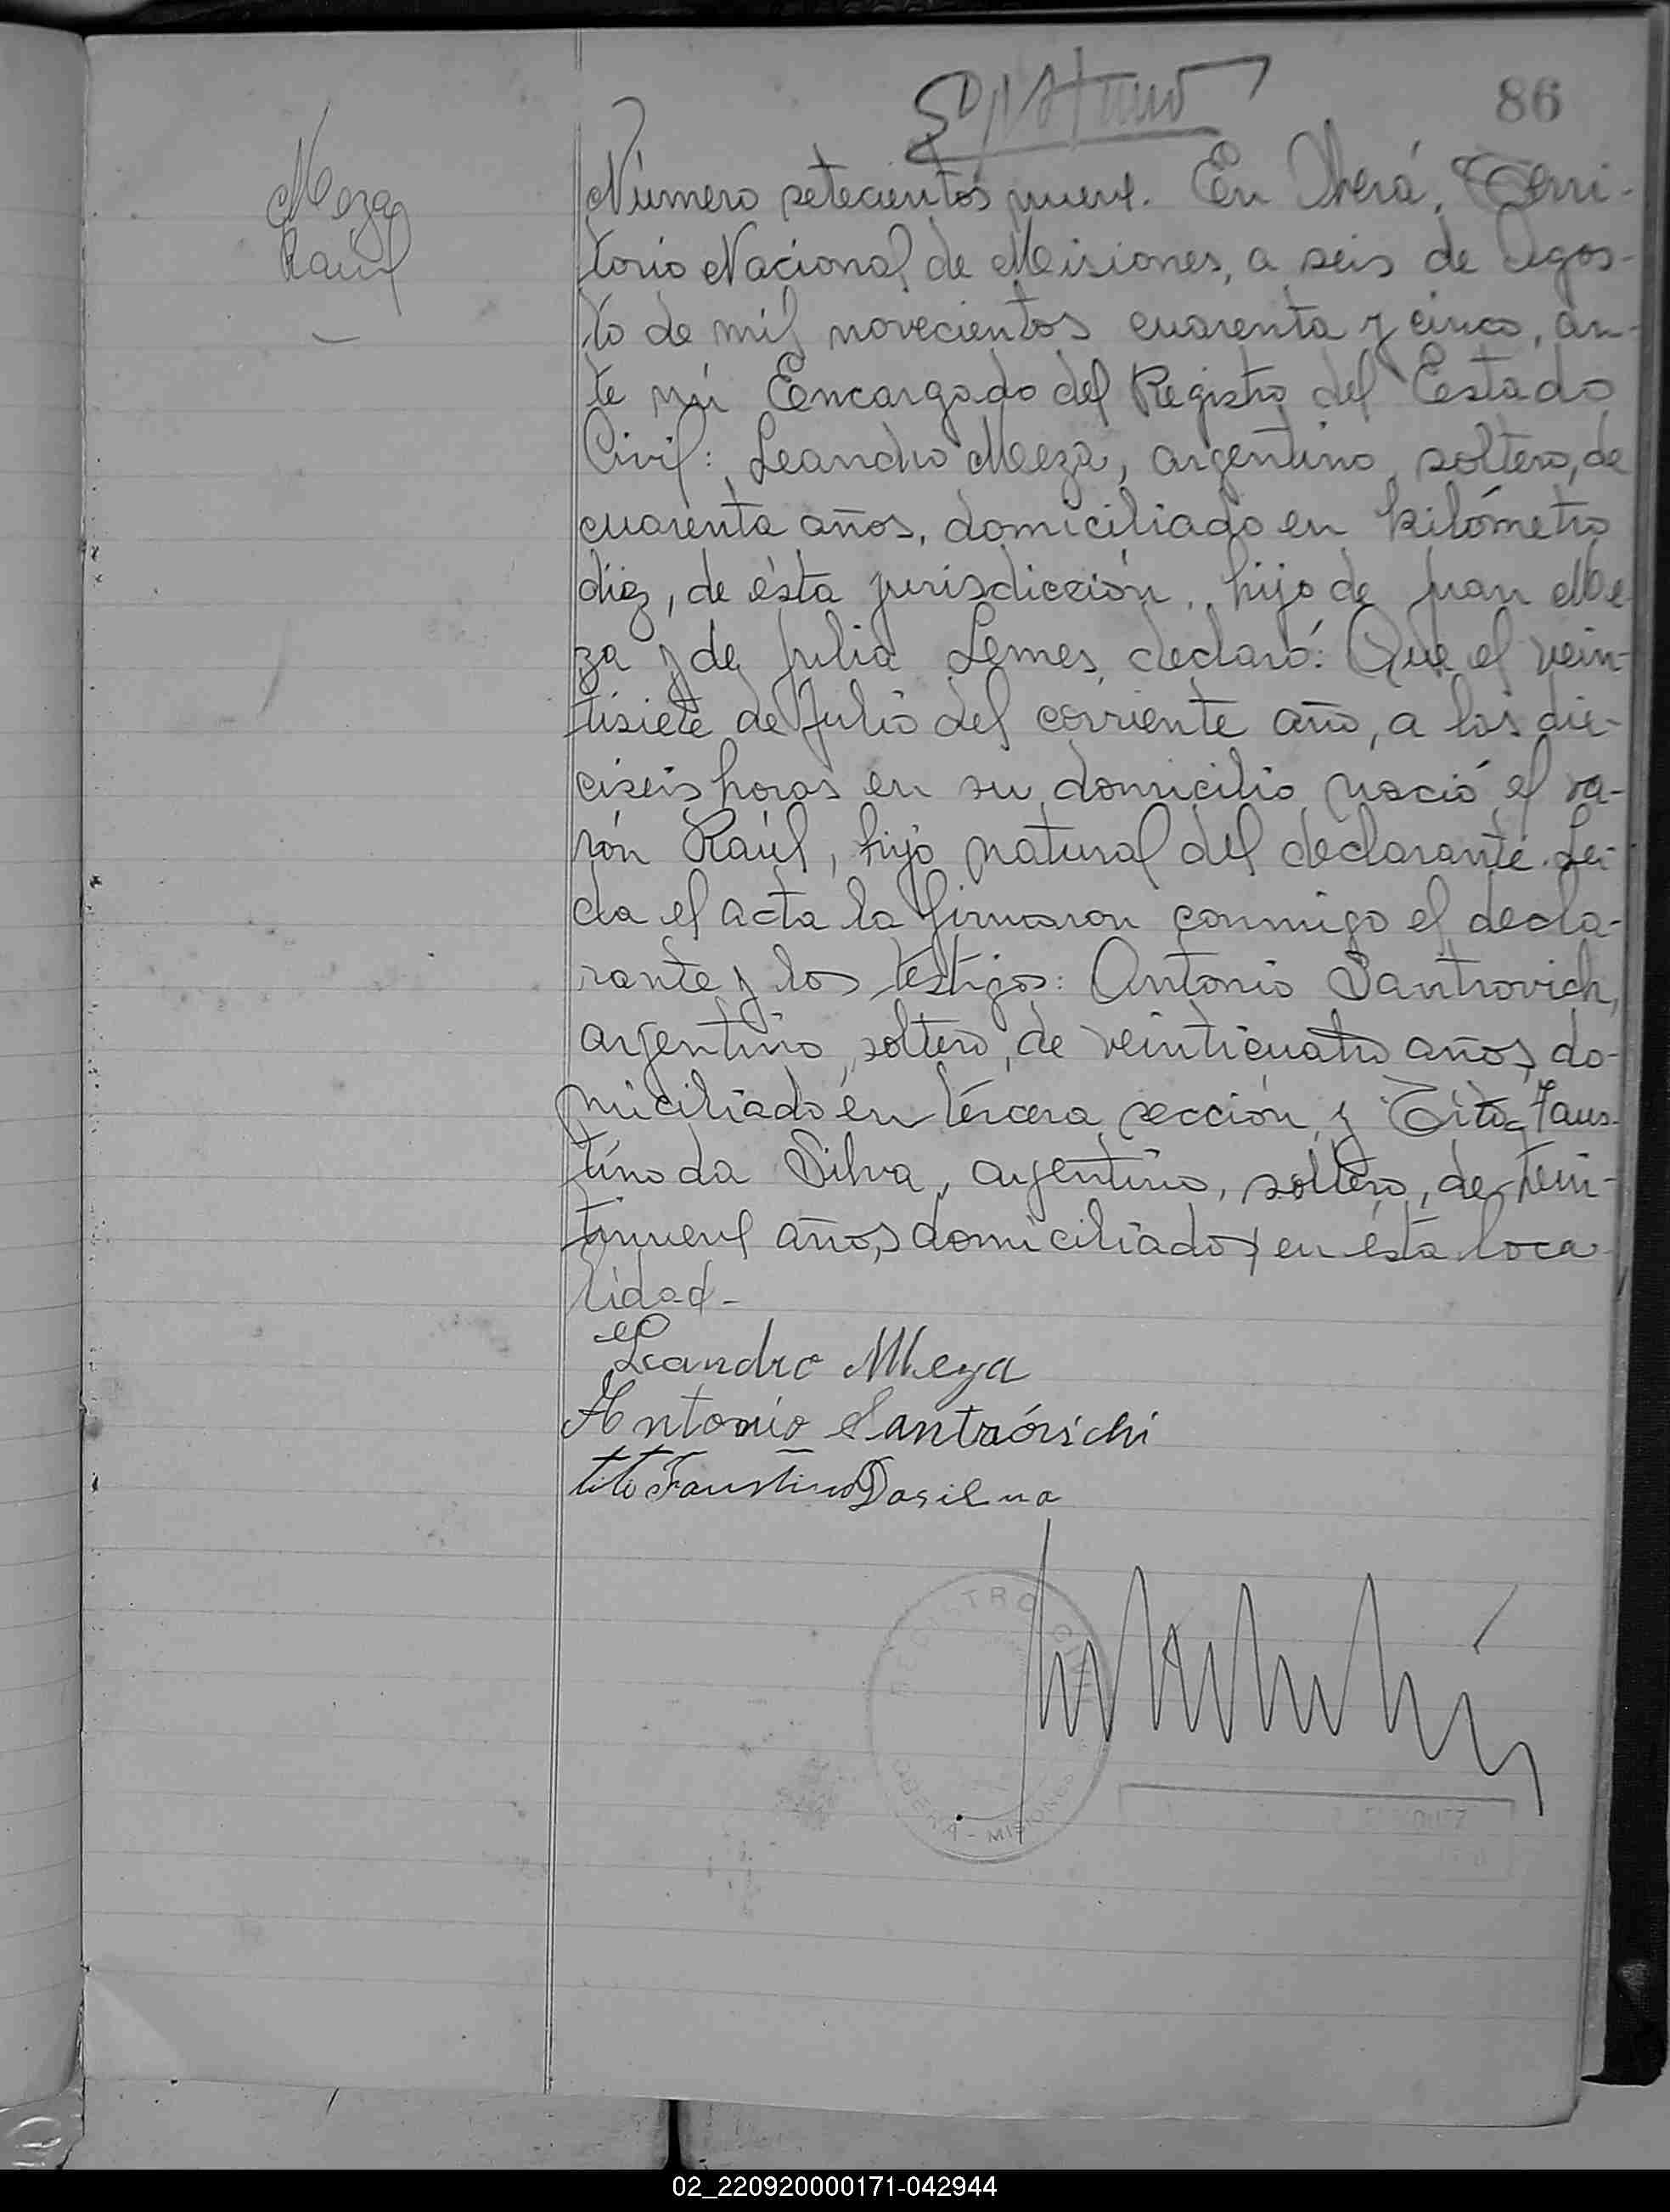 86
Meza
Raúl
Número setecientos nueve. En Oberá, Terri-
torio Nacional de Misiones, a seis de Agos-
to de mil novecientos cuarenta y cinco, an-
te mí Encargado del Registro del Estado
Civil: Leandro Meza, argentino, soltero, de
cuarenta años, domiciliado en kilómetro
diez, de ésta jurisdicción, hijo de Juan Me-
za y de Julia Lemes, declaró: Que el vein-
tisiete de Julio del corriente año, a las die-
ciseis horas en su domicilio nació el va-
rón Raúl, hijo natural del declarante. Leí-
da el acta la firmaron conmigo el decla-
rante y los testigos: Antonio Santrovich,
argentino, soltero, de veinticuatro años, do-
miciliado en tercera sección y Tito Faus-
tino da Silva, argentino, soltero, de vein-
tinueve años, domiciliado en ésta loca-
lidad-
Leandro Meza
Antonio Santróvichi
tito Faustino Dasilva
REGISTRO CIVIL
OBERÁ - MISIONES
02_220920000171-042944